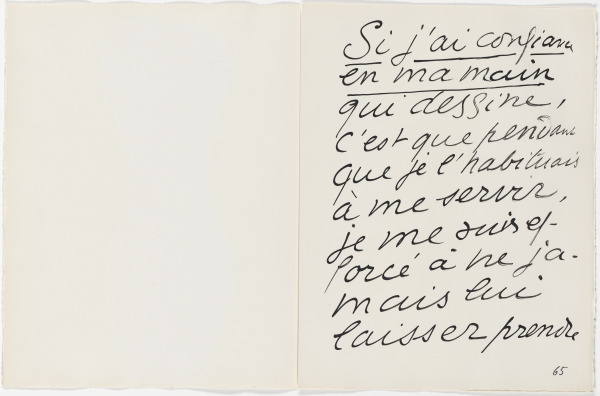 Si j'ai confiance
en ma main
qui dessine,
c'est que pendant
que je l'habituais
à me servir,
je me suis ef-
forcé à ne ja-
mais lui
laisser prendre
65